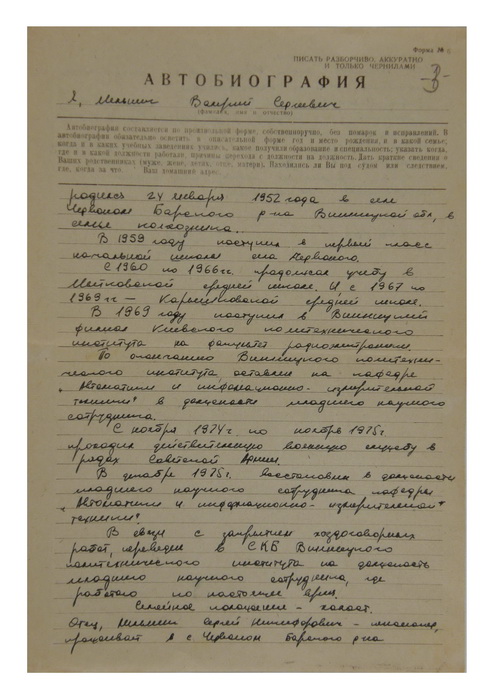 Форма №
ПИСАТЬ РАЗБОРЧИВО, АККУРАТНО
И ТОЛЬКО ЧЕРНИЛАМИ
-3-
АВТОБИОГРАФИЯ
Я, Мельник Валерий Сергеевич
(фамилия, имя и отчество)
Автобиография составляется по произвольной форме, собственноручно, без помарок и исправлений. В
автобиографии обязательно осветить в описательной форме год и место рождения, и в какой семье,
когда и в каких учебных заведениях учились, какое получили образование и специальность; указать когда,
где и в какой должности работали, причины перехода с должности на должность. Дать краткие сведения о
Ваших родственниках (муже, жене, отце, матери). Находились ли Вы под судом или следствием,
где, когда за что. Ваш домашний адрес.
родился 24 января 1952 года в селе
Червоном Барского р-на Винницкой обл., в
семье колхозника.
В 1959 году поступил в первый класс
начальной школы села Червоного.
С 1960 по 1966 гг. продолжал учебу в
средней школе. И с 1967 по
1969 гг — Карышковской средней школе.
В 1969 году поступил в Винницкий
филиал Киевского политехнического
института на факультет радиоэлектроники.
По окончанию Винницкого политехни-
ческого института оставлен на кафедре
„Автоматики и информационно-измерительной
техники" в должности младшего научного
сотрудника.
С ноября 1974 г по ноябрь 1975 г
проходил действительную военную службу в
рядах Советской Армии
В декабре 1975 г. восстановлен в должности
младшего научного сотрудника кафедры
„Автоматики и информационно-измерительной
техники".
В связи с закрытием хоздоговорных
работ, переведен в СКБ Винницкого
политехнического института на должность
младшего научного сотрудника, где
работаю по настоящее время.
Семейное положение - холост.
Отец, Мельник Сергей Никифорович - пенсионер,
проживает в с Червоном Барского р-на